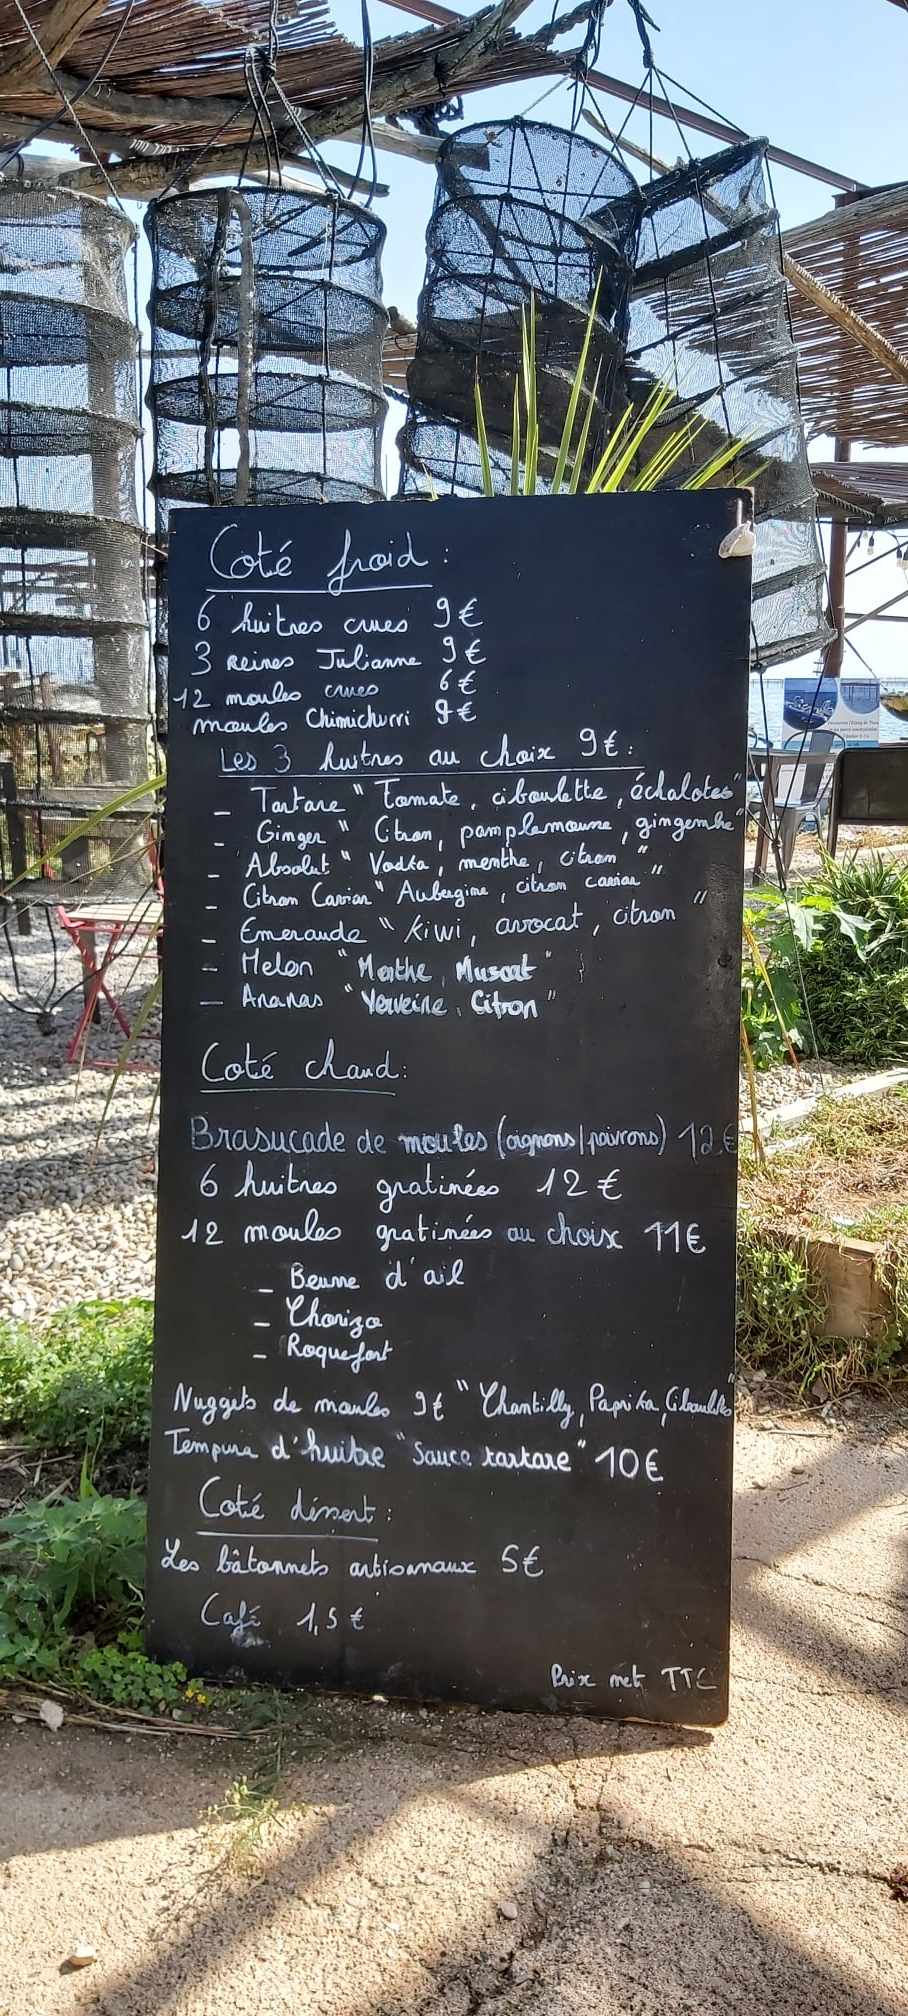 Coté froid :
6 huitres crues 9€
3 Reines Julianne 9€
12 moules crues 6€
moules Chimichurri 9€
Les 3 huitres au choix 9€ :
- Tartare " Tomate, ciboulette, échalotes"
- Ginger " Citron, pamplemousse, gingembre"
- Absolut " Vodka, menthe, citron "
- Citron Caviar " Aubergine, citron caviar "
- Emeraude " kiwi, avocat, citron "
- Melon " Menthe, Muscat "
- Ananas " Verveine, Citron "
Coté chaud :
Brasucade de moules (oignons/poivrons) 12€
6 huitres gratinées 12€
12 moules gratinées au choix 11€
- Beurre d'ail
- Chorizo
- Roquefort
Nuggets de moules 9€ " Chantilly, Paprika, Ciboulette"
Tempura d'huitre " Sauce tartare " 10€
Coté déssert :
Les bâtonnets artisanaux 5€
Café 1,5€
Prix net TTC